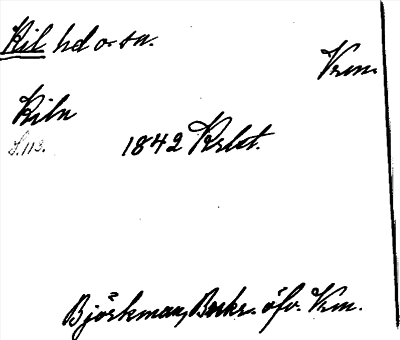 Kil hd o. sn.
Vrm.
Kiln
S. 113.
1842 Krlst.
Björkman, Beskr. öfv. Vrm.